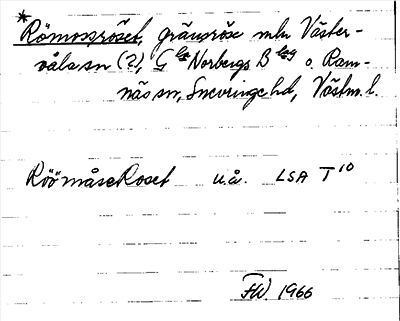 *Römossröset, gränsröse mln Väster-
våla sn (?), G:la Norbergs Bslag o. Ram-
näs sn, Snevringe hd, Västm. l.
RöömåseRoset u.å. LSA T 10
FW. 1966